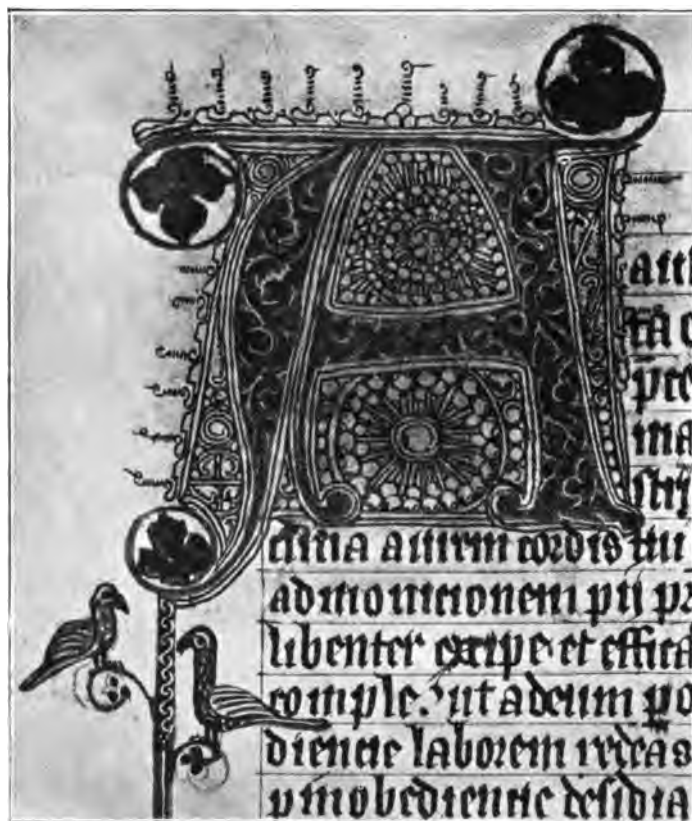 pre
ma
stri
clina aurem cordis tui
admonicionem pij p
libenter excipe et effica
comple. ut ad eum p
diencie laborem redeas
p inobediencie desidia